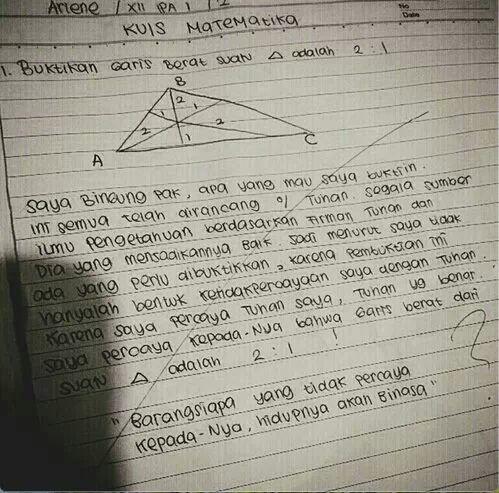 Arlene / XII IPA 1 / 2
No
Date
KUIS MATEMATIKA
1. BUKTIKAN GARIS BERAT SUATU Δ adalah 2 : 1
B
2
1
1
2
2
1
A
C
Saya BINGUNG PAK, apa yang mau saya buktiin.
Ini semua telah dirancang o/ Tuhan. Segala sumber
ilmu pengetahuan berdasarkan Firman Tuhan dan
Dia yang menjadikannya Baik. Jadi menurut saya tidak
ada yang perlu dibuktikkan, karena pembuktian ini
hanyalah bentuk ketidakpercayaan saya dengan Tuhan.
Karena saya percaya Tuhan saya, Tuhan yg benar.
saya percaya kepada-Nya bahwa Garis berat dari
suatu Δ adalah 2 : 1 !
"Barangsiapa yang tidak percaya
kepada-Nya, hidupnya akan Binasa"
?